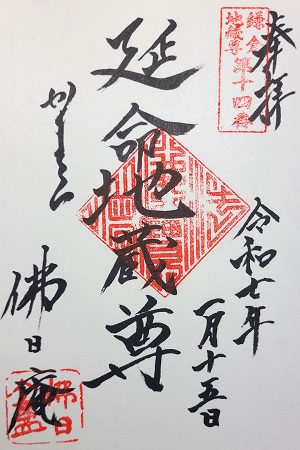 奉拝
鎌倉
地蔵尊
第十四番
令和七年
一月十五日
延命地蔵尊
かまくら
佛日庵
佛日